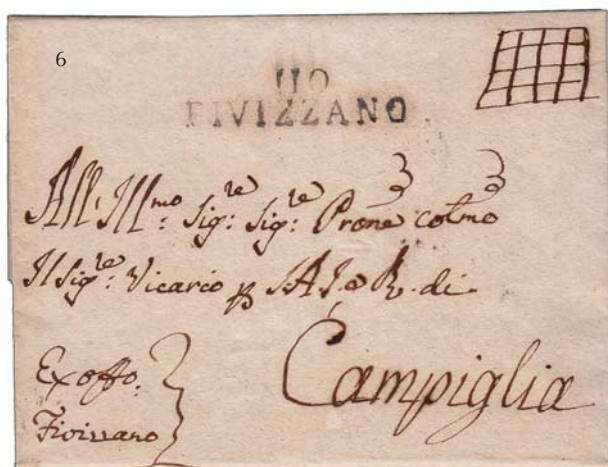 6
110
FIVIZZANO
All'Ill.mo Sig.re Sig.re Prone colmo
Il Sig.re Vicario p S.A.I. e R. di
Campiglia
Ex offo.
Fivizzano